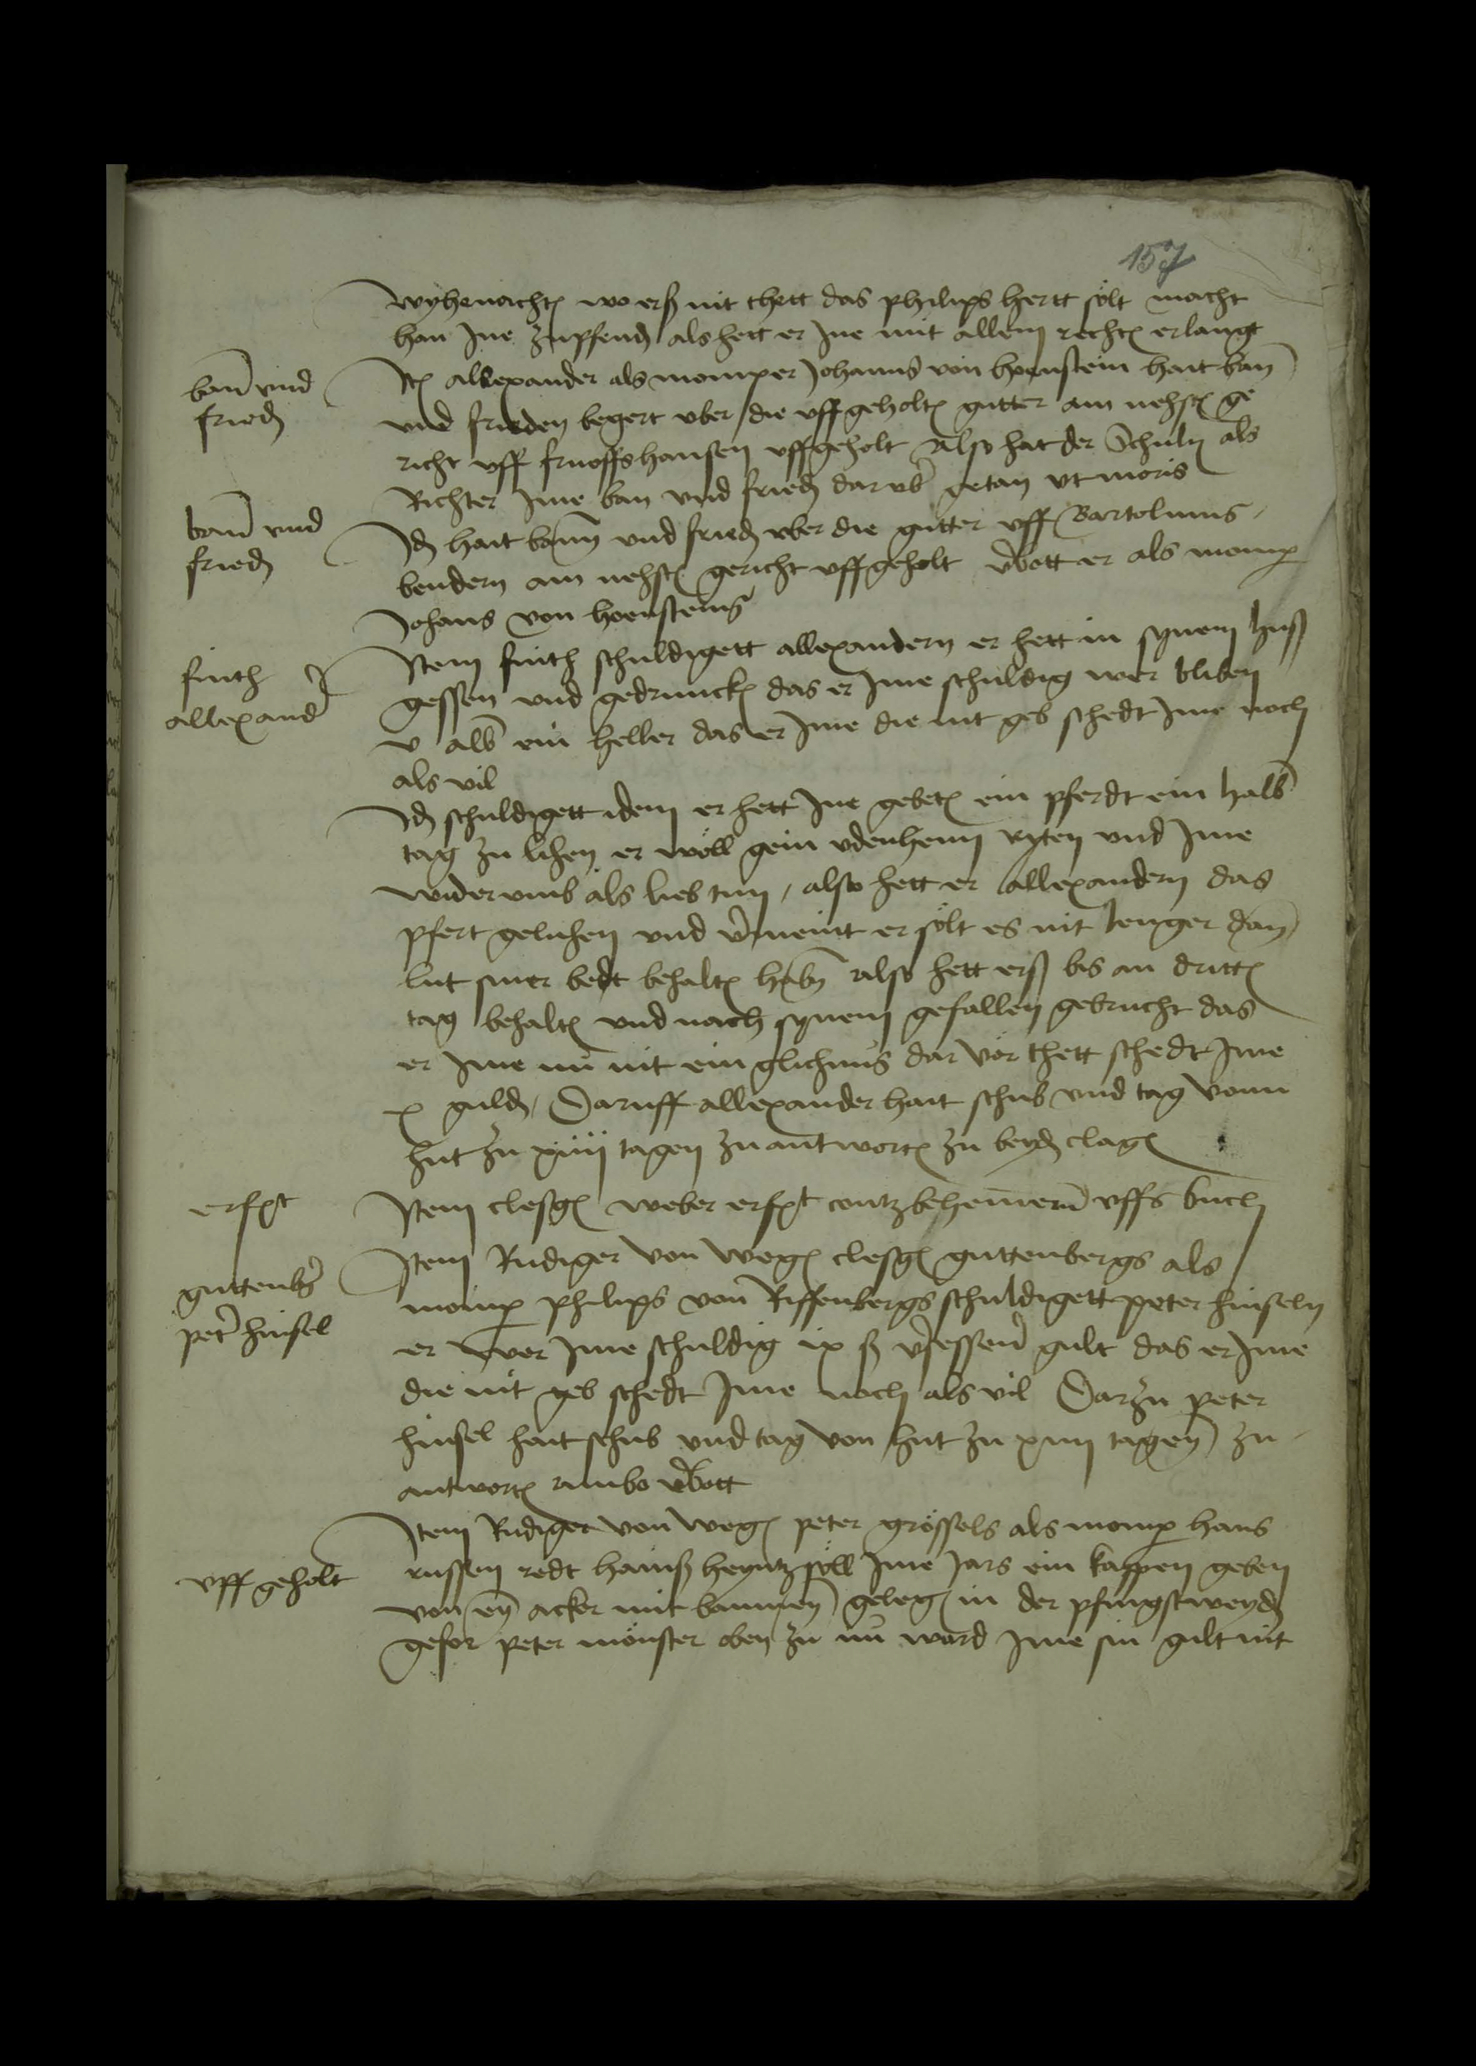 157
wyhenacht wo erß nit thett das philips hertt sölt macht
han Ine zupfend als hett er Ine mit allem recht erlangt
ban und
fried
It allexander als momper Johanns von hoenstein hait ban
und frieden begert uber die uffgeholt gutter am nehst ge
richt uff
uffgeholt Also hat der Schuln als
Richter Ime ban und fried darub getan ut moris
ban und
fried
Id hait bann und fried uber die gutter uff Bartolmus
bendern am nehst gericht uffgeholt vbott er als momp
Johans von hoensteins
finth
allexand
Item finth schuldigett allexandern er hett in synem huß
gessen und gedrunck das er Ime schuldig wer bliben
v alb ein heller das er Ime die nit geb schedt Ime noch
als vil
Id schuldigett idem er hett Ine gebet ein pferdt ein halb
tag zu lihen er wöll gein udenhem ryten und Ime
widerumb als lieb tun, also hett er allexandern das
pfert geluhen und vmeint er sölt es nit lenger dan
lut siner bedt behalt habn also hett erß bis an dritt
tag behalt und nach synem gefallen gebrucht das
er Ime nu nit ein glichnus dar vor thett schedt Ime
x guld, Daruff allexander hait schub und tag vonn
hut zu xiiii tagen zu antwort zu beyd clag
erfpt
Item clesg weber erfpt contz behemern uffs buch
guttenbg
pet hiusel
Item Rudiger von weg clesg guttenbergs als
momp philips von Riffenbergs schuldigett peter hiuseln
er wer Ime schuldig ix ß vsessend gult das er Ime
die nit geb schedt Ime noch als vil Darzu peter
hiusel hait schub und tag von hut zu xiiii tagen zu
antwort ambo vbott
uffgeholt
Item Rudiger von weg peter grössels als momp hans
russen redt hainß heyntz söll Ime Jars ein kappen geben
von eyn acker mit baumen geleg in der pfingstweyd
gefor peter mönster oben zu nu ward Ime sin gult nit